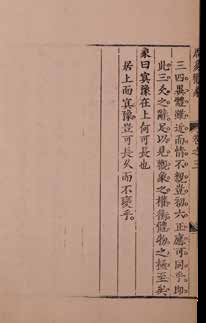 三四異體雖近而情不親豈初六正應可同乎即
此三爻之辭足以見觀象之權衡體物之極至矣
象曰冥豫在上何可長也
居上而冥豫豈可長久而不變乎